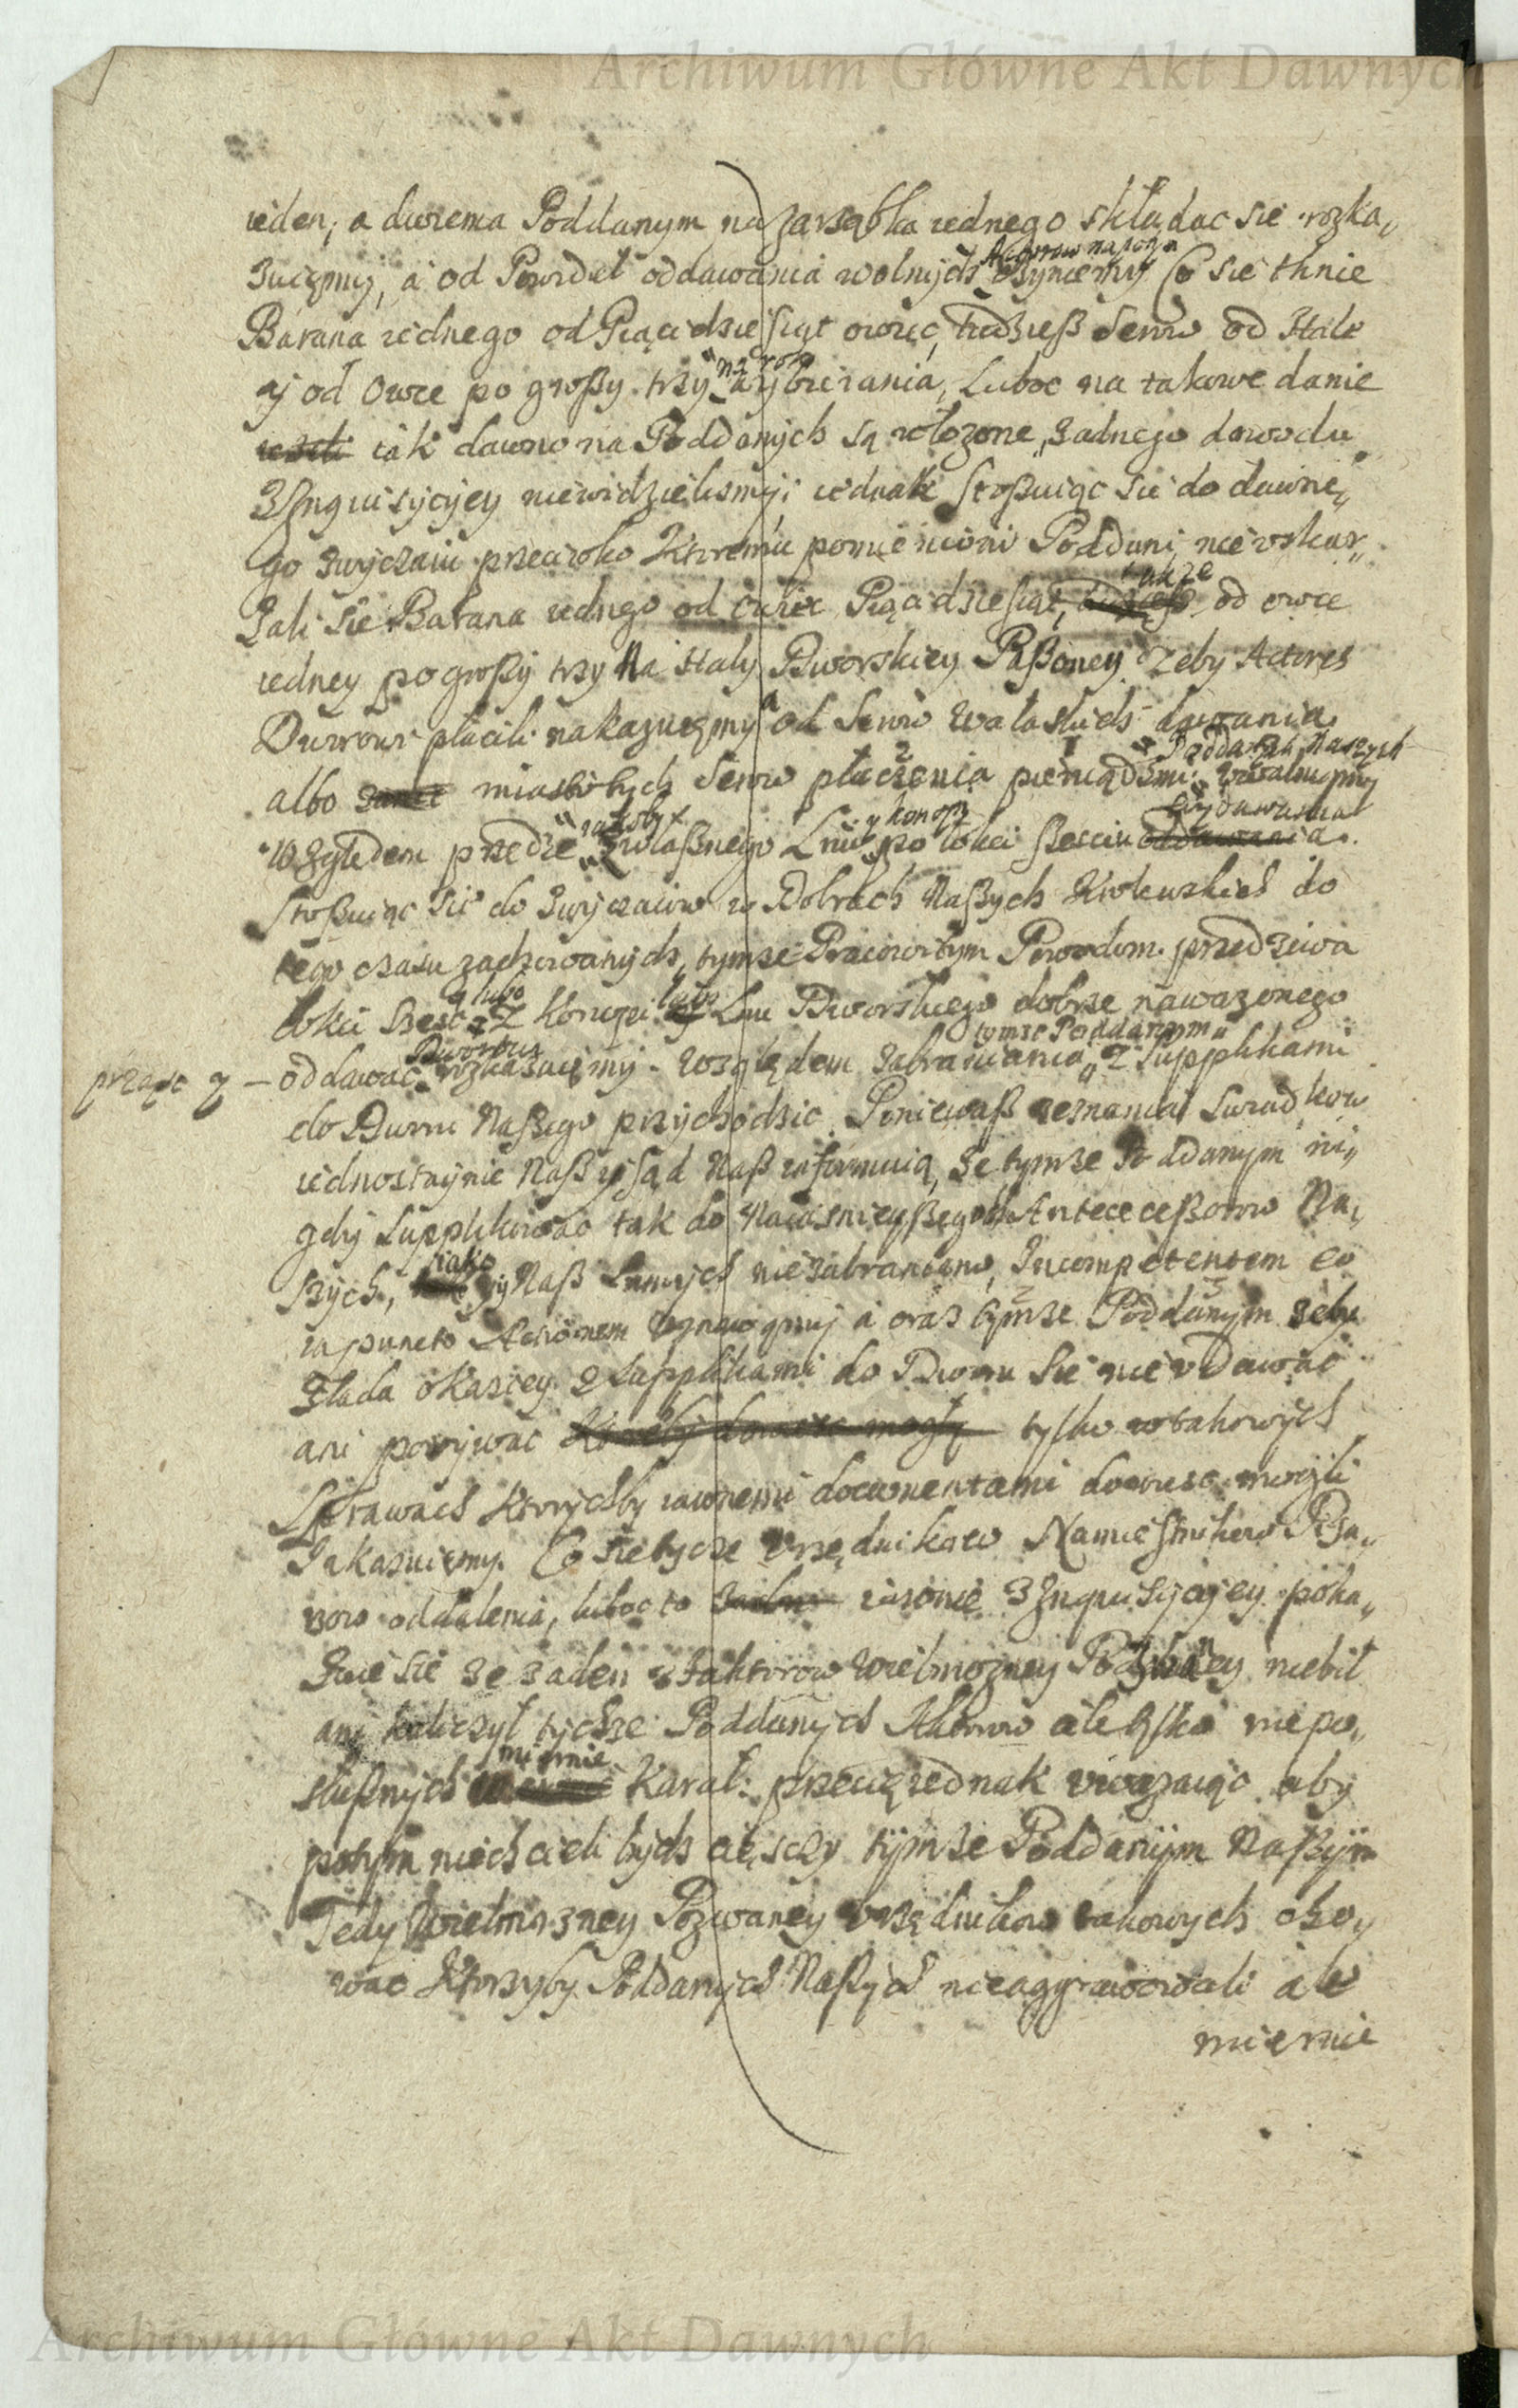 Archiwum Główne Akt Dawnych
ieden, a dwiema Poddanym na zarąbka iednego składac się rozka„
zuięmy, a od Powideł oddawania wolnych Actorow na potym czyniemy Co się tknie
Barana iednego od Pięcidziesiąt owiec, tudziesz serow od Stale
ÿ od Owce po groszy trzy na rok wybierania, Luboc na takowe danie
iak dawno na Poddanych są włozone, zadnego dowodu
z Inquisycyey niewidzielismy; iednak stosuiąc się do dawne„
go zwyczaiu przeciwko ktoremu pomienioni Poddani nieuskar„
zali się Barana iednego od owiec Pięcidziesiąt, takze od owce
iedney po groszy trzy Na staly Dworskiey Paszoney zeby Actores
Dworowi płacili nakazuięmy a od serow Wałaskich dawania
albo miasto tych serow płaczenia pieniądzmi Poddanych Naszych uwalniamy
Względem przędze zwłasznego Lnu y konopi po łokci szesciu wydawania
stosuiąc się do zwyczaiow w Dobrach Naszych Krolewskich do
tego czasu zachowanych, tymze Pracowitym Powodom przędziwa
łokci szesc z Konopi lubo Lnu Dworskiego dobrze nawazonego
prząsc y — oddawac Dworowi rozkazuięmy. Względem zabraniania tymze Poddanym z supplikami
do Dworu Naszego przychodzic Poniewasz zeznania Swiadkow
iednostaynie Nasz y Sąd Nasz informuią, ze tymze Poddanym ni„
gdy supplikowac tak do Naiasnieyszych Antecessorow Na„
szych, iako y Nasz samych niezabraniano, Incompetentem eo
in puncto Actionem Uznawamy a oraz tymze Poddanym zeby
zlada okaziey z supplikami do Dworu się nie udawac
ani porywac tylko w takowych
Sprawach ktorychby iawnemi documentami dowiesc mogli
zakazuięmy. Co się tycze Urzędnikow Namiesnikow Pisa„
row oddalenia, luboc to iasnie z Inquisycyey poka„
zuie się ze zaden z Faktorow Wielmozney Pozwaney niebił
ani kaliczył tychze Poddanych Aktorow ale tylko niepo„
słusznych miernie Karał. przecię iednak uwazaiąc aby
potym niechcieli bydz cięsczy tymze Poddanym Naszym
Tedy Wielmozney Pozwaney Urzędnikow takowych cho„
wac Ktorzyby Poddanych Naszych nieaggrawowali ale
miernie
Archiwum Główne Akt Dawnych